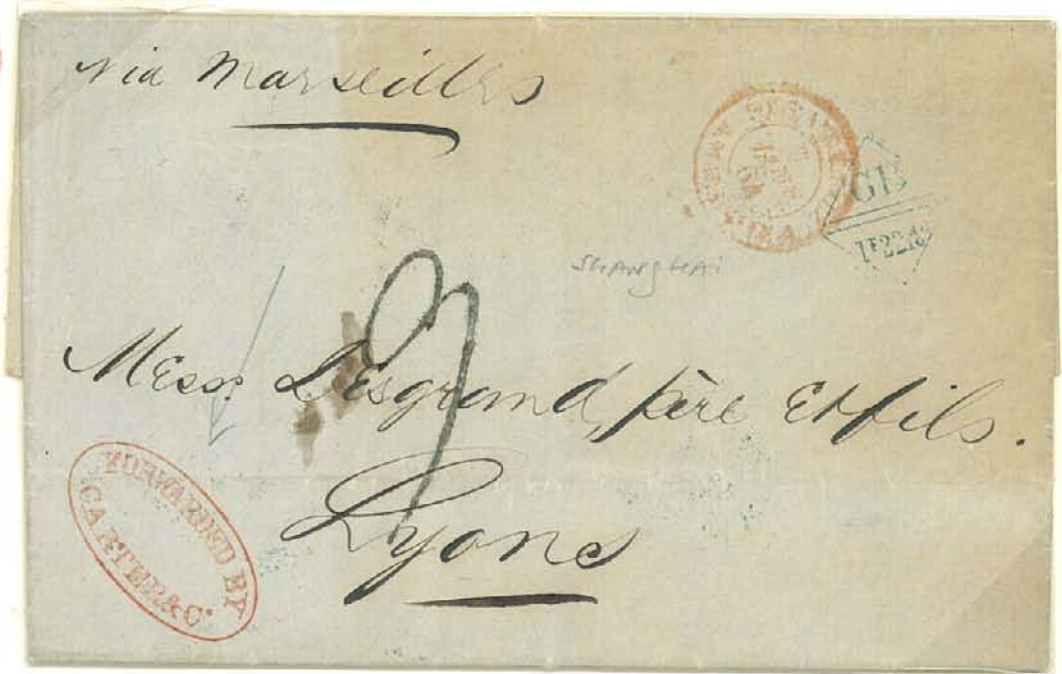 via Marseilles
GB
1F22
SHANGHAI
Mess. Desgrand, père et fils.
9
Lyons
FORWARDED BY
CARTER & Co.